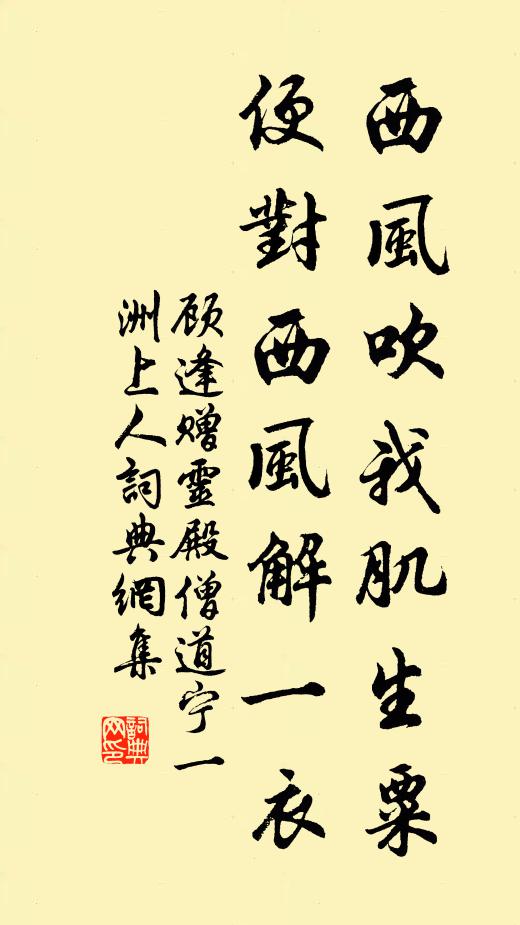 西風吹我肌生粟
便對西風解一衣
顾逢赠靈殿僧道宁一
洲上人詞典網集
詞典
网印